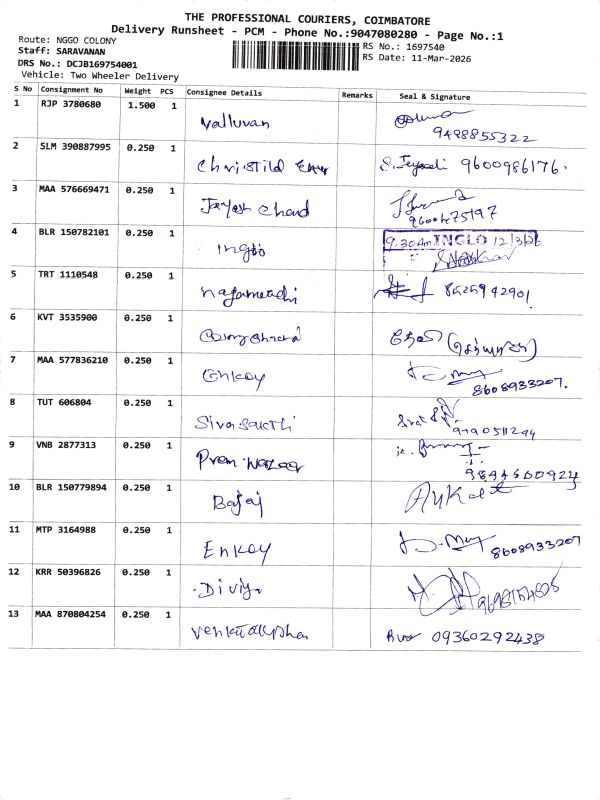 THE PROFESSIONAL COURIERS, COIMBATORE
Delivery Runsheet - PCM - Phone No.:9047080280 - Page No.:1
Route: NGGO COLONY
RS No.: 1697540
Staff: SARAVANAN
RS Date: 11-Mar-2026
DRS No.: DCJB169754001
Vehicle: Two Wheeler Delivery
S No Consignment No Weight PCS Consignee Details Remarks Seal & Signature
1 RJP 3780680 1.500 1 Valluvan 9488855322
2 SLM 390887995 0.250 1 Christild 9600986176.
3 MAA 576669471 0.250 1 Jayesh Chand
4 BLR 150782101 0.250 1 Inglo 9:30Am INGLO 12/3/26
5 TRT 1110548 0.250 1 nagamandhi 8525942901
6 KVT 3535900 0.250 1
7 MAA 577836210 0.250 1 Enkay 8608933207.
8 TUT 606804 0.250 1 Siva sakthi
9 VNB 2877313 0.250 1 Prem Nazeer
10 BLR 150779894 0.250 1 Bajaj
11 MTP 3164988 0.250 1 Enkay 8608933207
12 KRR 50396826 0.250 1 Diviya
13 MAA 870804254 0.250 1 09360292438